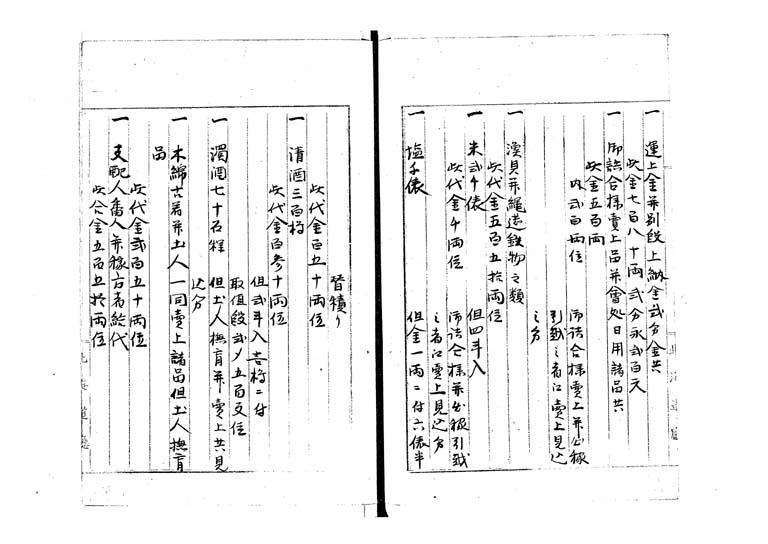 一 運上金并別段上納金弐分金共
此金七百八十両弐分永弐百文
一 御詰合様賣上品并會処日用諸品共
此金五百両
内弐百両位
御詰合様賣上并出稼
引越之者江賣上見込
之分
一 漁具并縄莚鉄物之類
此代金五百五拾両位
一 米弐千俵 但四斗入
此代金千両位
御詰合様并出稼引越
之者江賣上見込分
一 塩千俵 但金一両ニ付六俵半
替積り
此代金百五十両位
一 清酒三百樽
此代金百参十両位
但弐斗入壱樽ニ付
取直段弐〆五百文位
一 濁酒七十石程 但土人撫育并賣上共見
込分
一 木綿古着并土人一同賣上諸品但土人撫育
品
此代金弐百五十両位
一 支配人番人并稼方者給代
此金五百五拾両位
北海道廳
北海道廳